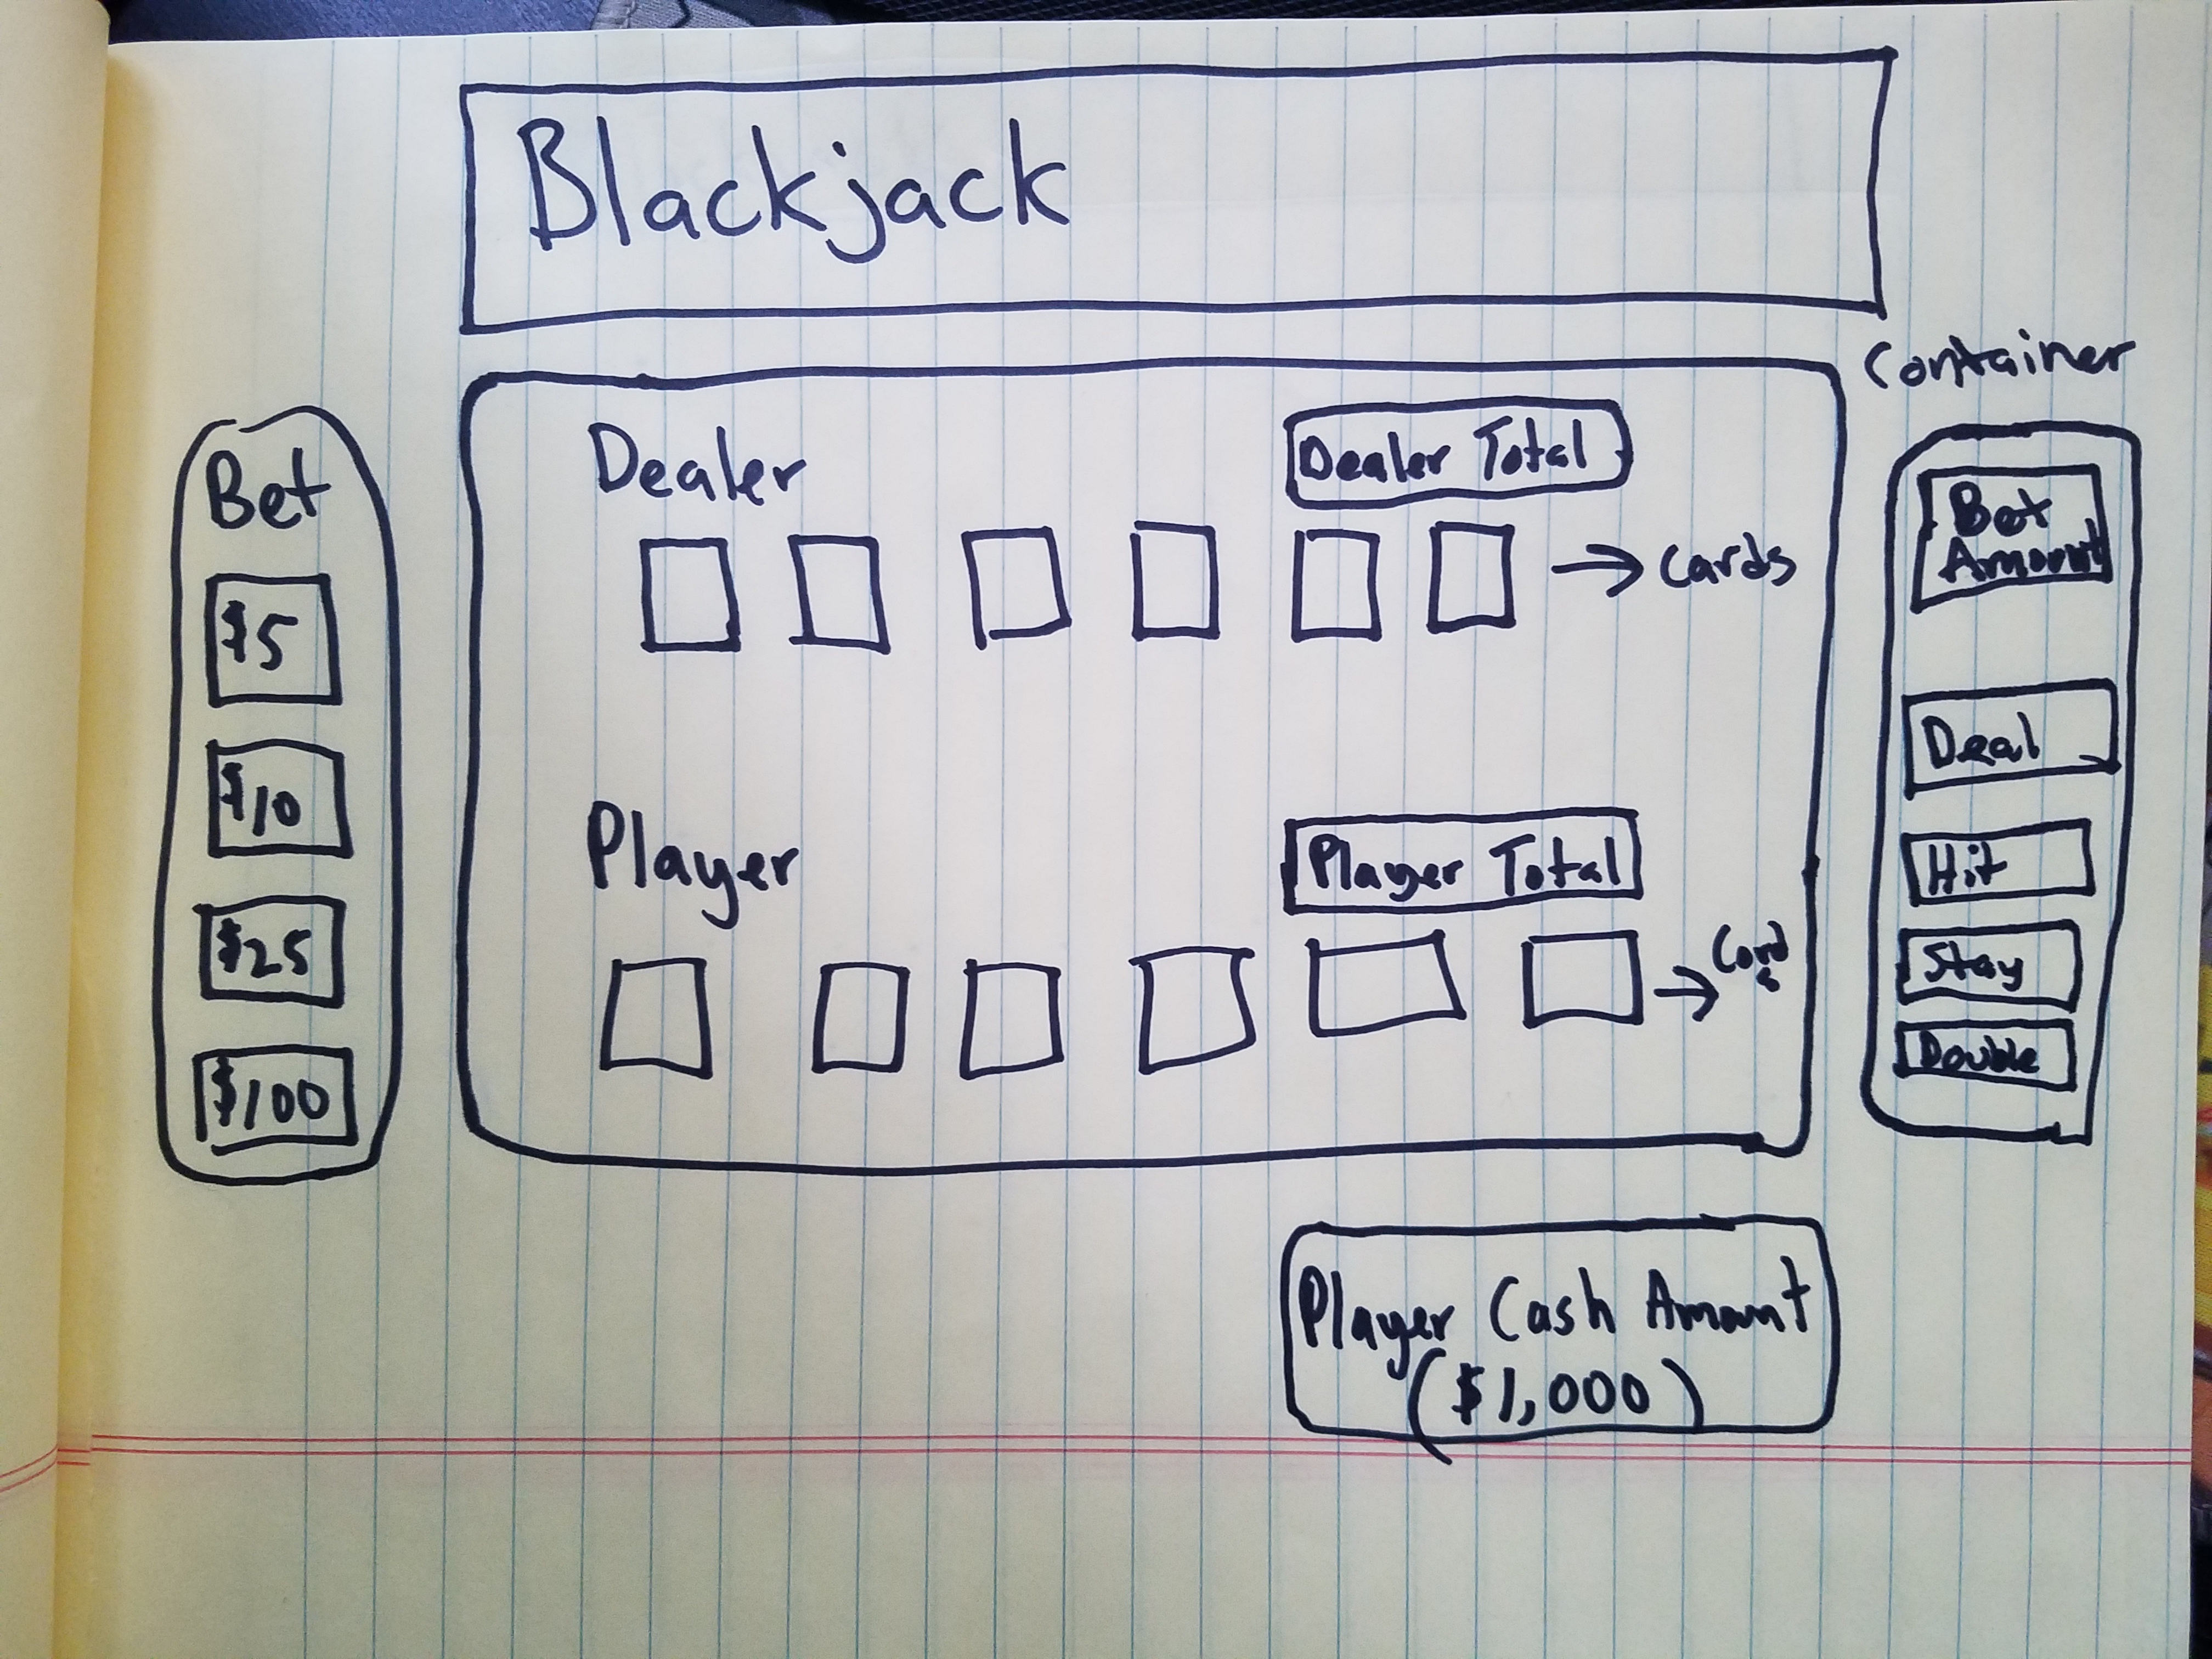 Blackjack
Container
Bet
$5
$10
$25
$100
Dealer
Dealer Total
→ cards
Player
Player Total
→ Cards
Bet
Amount
Deal
Hit
Stay
Double
Player Cash Amount
($1,000)